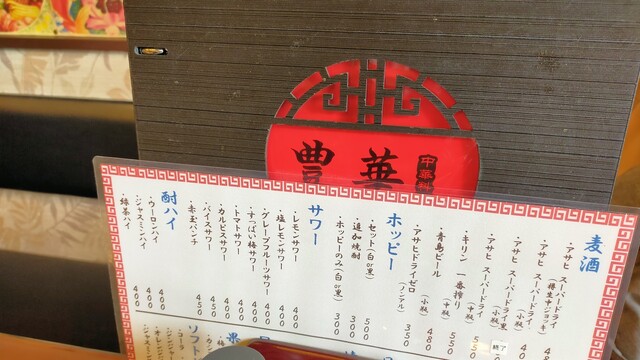 豊華
中華料
麦酒
・アサヒ スーパードライ
(樽生中ジョッキ)
・アサヒ スーパードライ
(小瓶)
・アサヒ スーパードライ黒
(小瓶)
終了
・アサヒ スーパードライ
(中瓶)
・キリン 一番搾り
(中瓶) 550
・青島ビール
(小瓶) 480
・アサヒドライゼロ
(ノンアル) 350
ホッピー
・セット(白or黒) 500
・追加焼酎 300
・ホッピーのみ(白or黒) 300
サワー
・レモンサワー 400
・塩レモンサワー 400
・グレープフルーツサワー 400
・すっぱい梅サワー 400
・トマトサワー 400
・カルピスサワー 400
・バイスサワー 450
・赤玉パンチ 450
酎ハイ
・ウーロンハイ 400
・ジャスミンハイ 400
・緑茶ハイ 400
ソフ